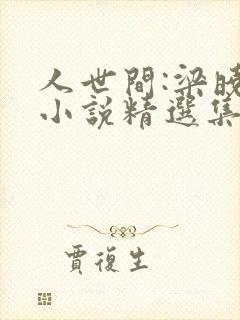 人世間:梁曉
小說精選集
賈復生